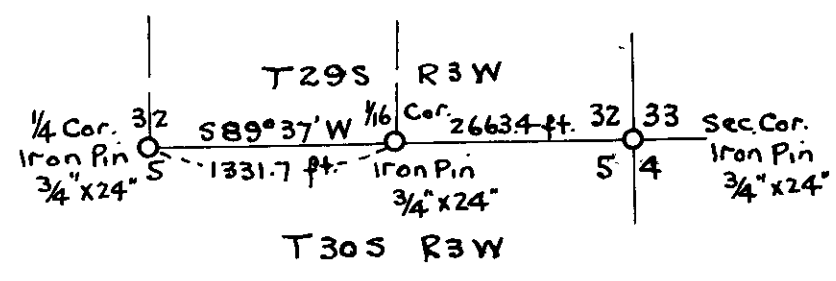 T29S R3W
1/4 Cor. 32 S89°37'W 1/16 Cor. 2663.4 ft. 32 33 Sec. Cor.
Iron Pin 5 1331.7 ft. Iron Pin 5 4 Iron Pin
3/4" x 24" 3/4" x 24" 3/4" x 24"
T30S R3W